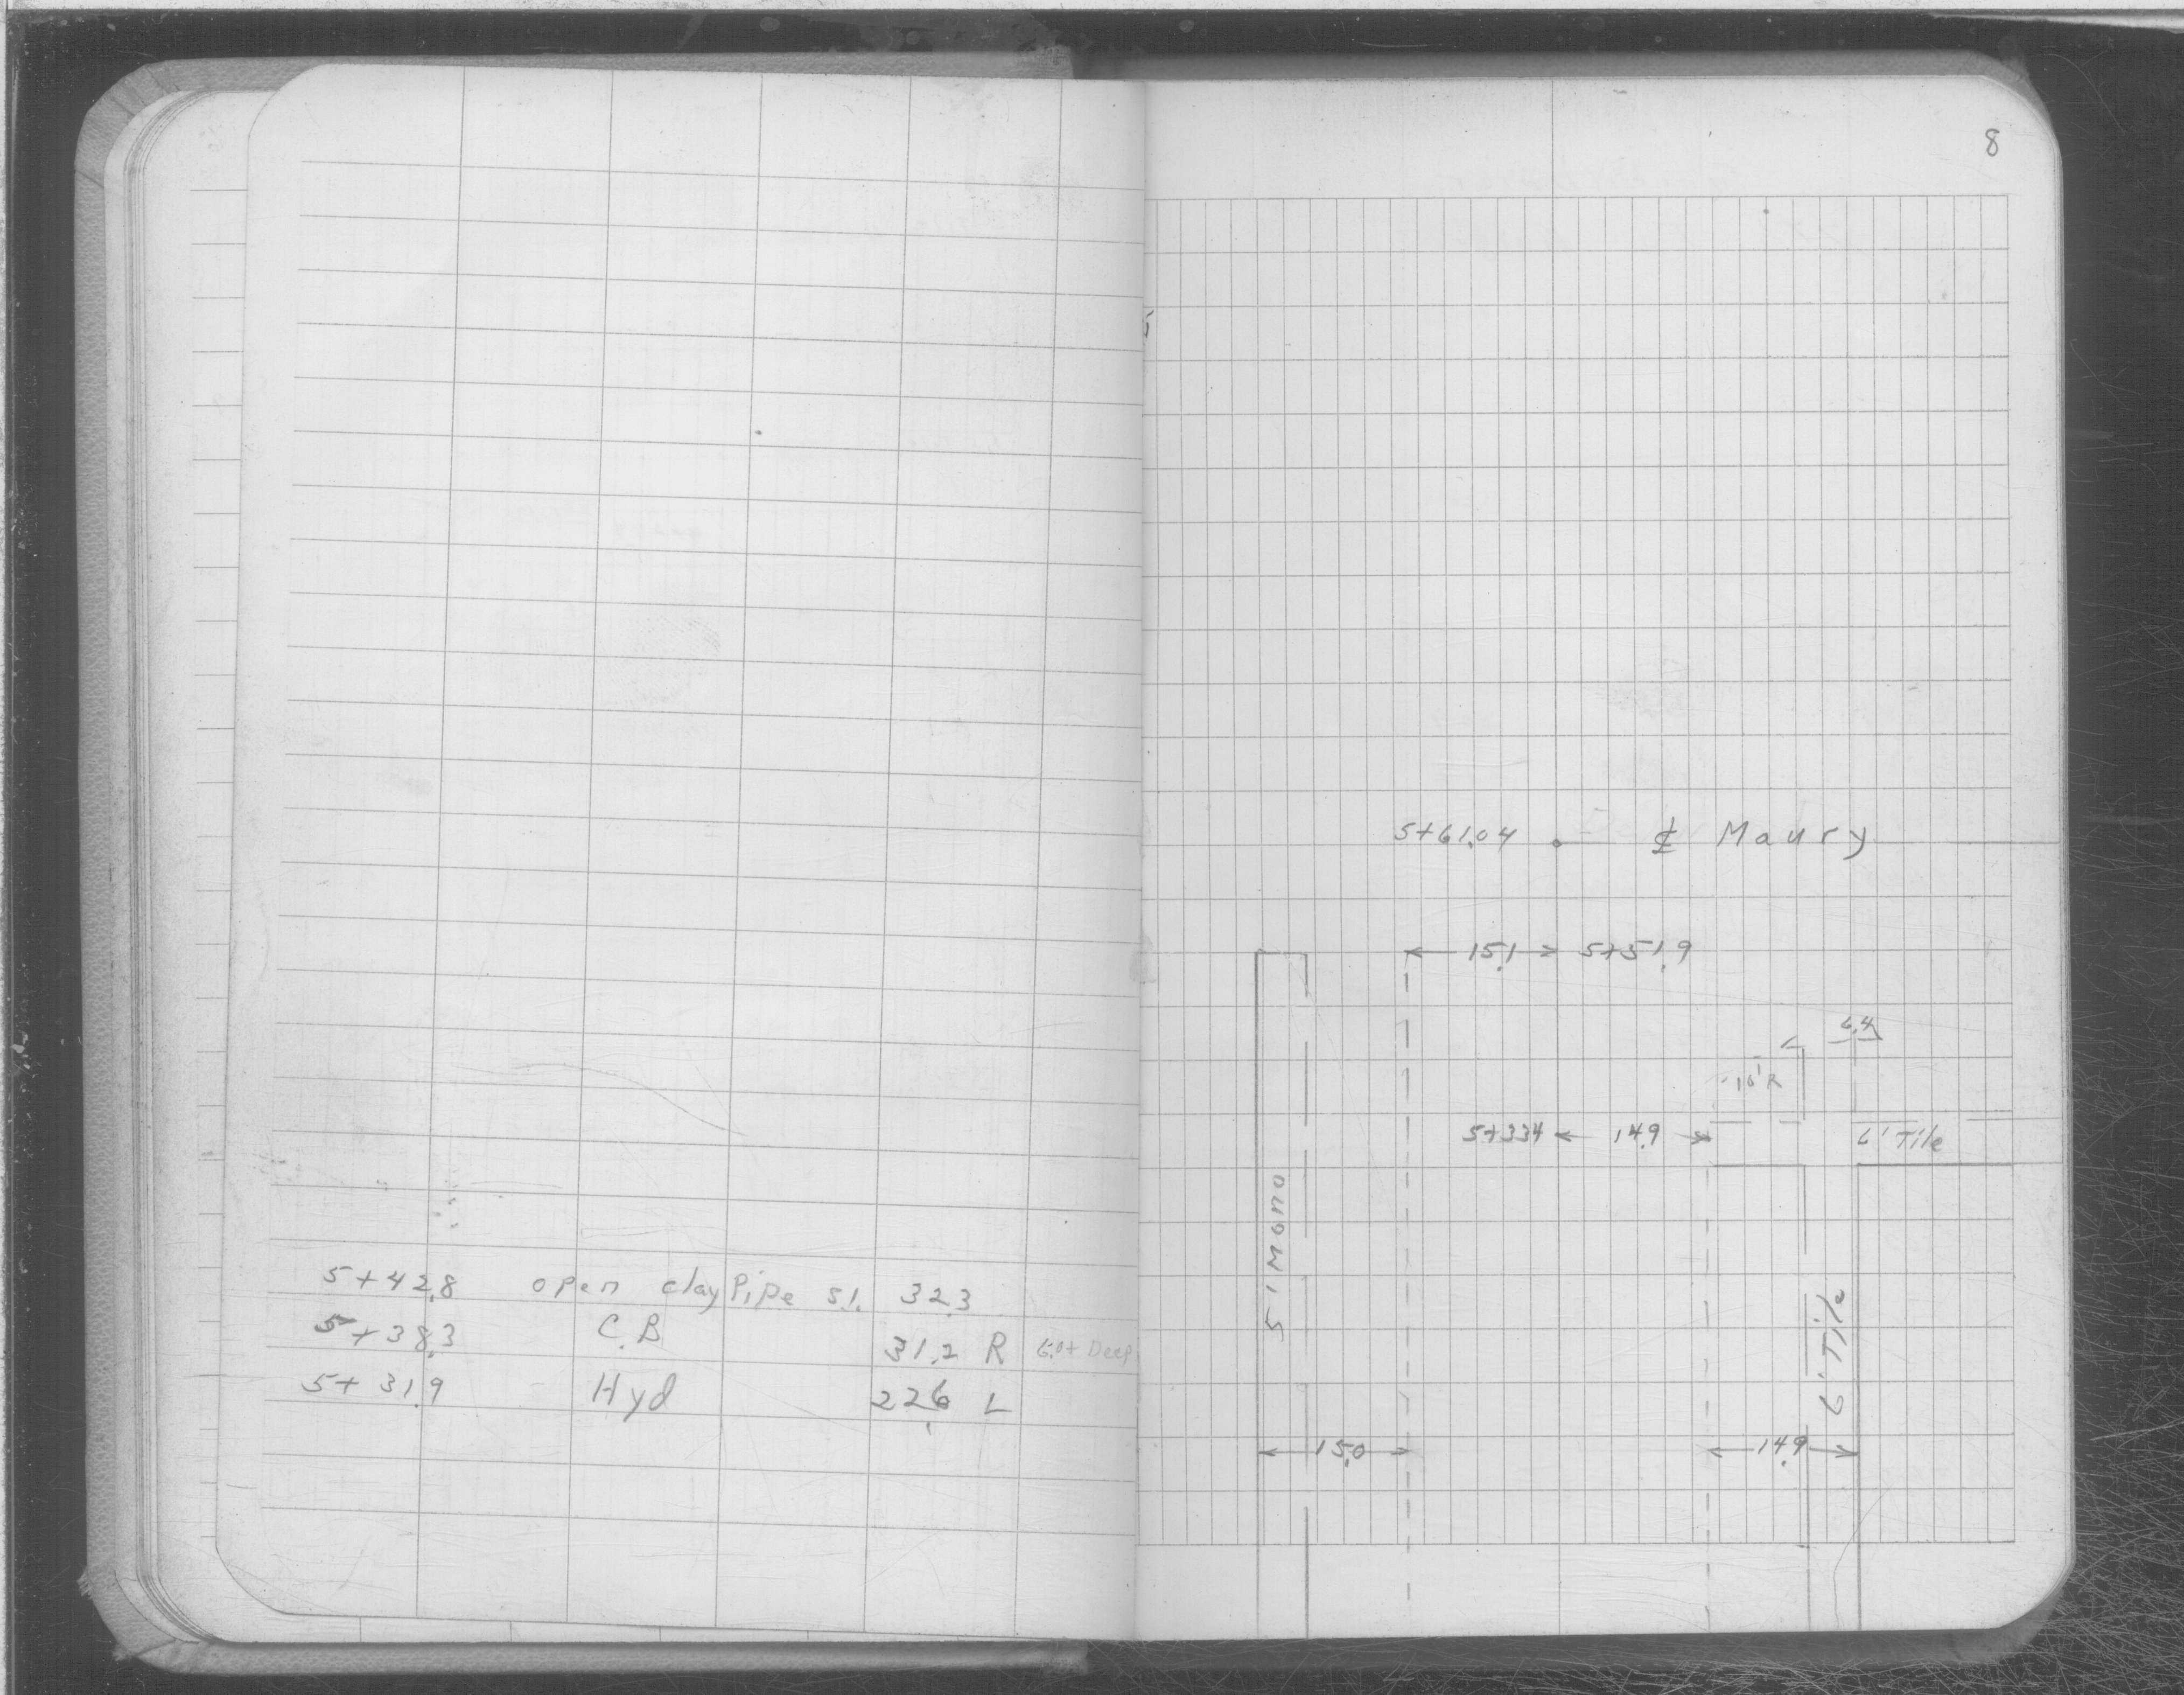 5+42.8 open clay Pipe S.I. 32.3
5+38.3 C.B 31.2 R 6.0+ Deep
5+31.9 Hyd 22.6 L
8
5+61.04 ℄ Maury
15.1 5+51.9
6.4
10'R
5+33.4 14.9
6' Tile
5' Mono
6' Tile
15.0 14.9